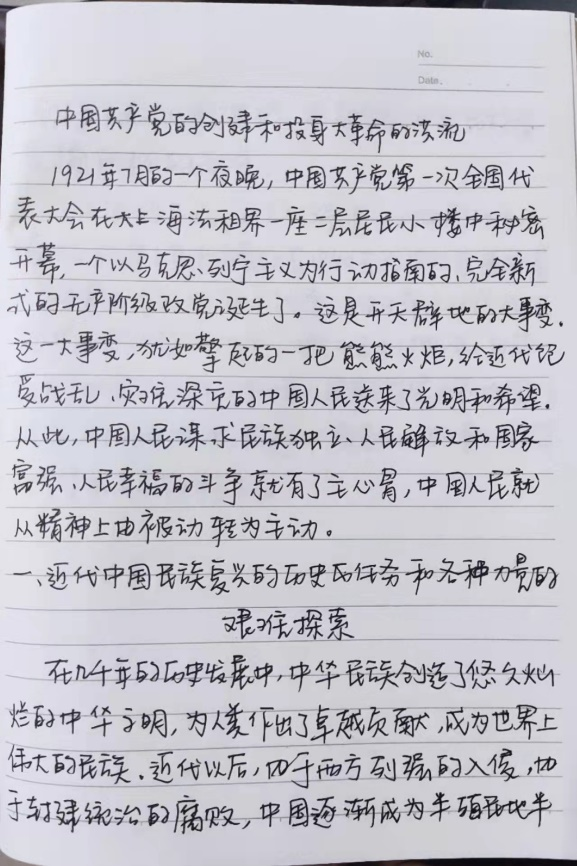 No.
Date.
中国共产党的创建和投身大革命的洪流
1921年7月的一个夜晚，中国共产党第一次全国代
表大会在大上海法租界一座二层居民小楼中秘密
开幕，一个以马克思、列宁主义为行动指南的、完全新
式的无产阶级政党诞生了。这是开天辟地的大事变。
这一大事变，犹如擎起的一把熊熊火炬，给近代饱
受战乱、灾难深重的中国人民送来了光明和希望。
从此，中国人民谋求民族独立、人民解放和国家
富强、人民幸福的斗争就有了主心骨，中国人民就
从精神上由被动转为主动。
一、近代中国民族复兴的历史的任务和各种力量的
艰难探索
在几千年的历史发展中，中华民族创造了悠久灿
烂的中华文明，为人类作出了卓越贡献，成为世界上
伟大的民族。近代以后，由于西方列强的入侵，由
于封建统治的腐败，中国逐渐成为半殖民地半